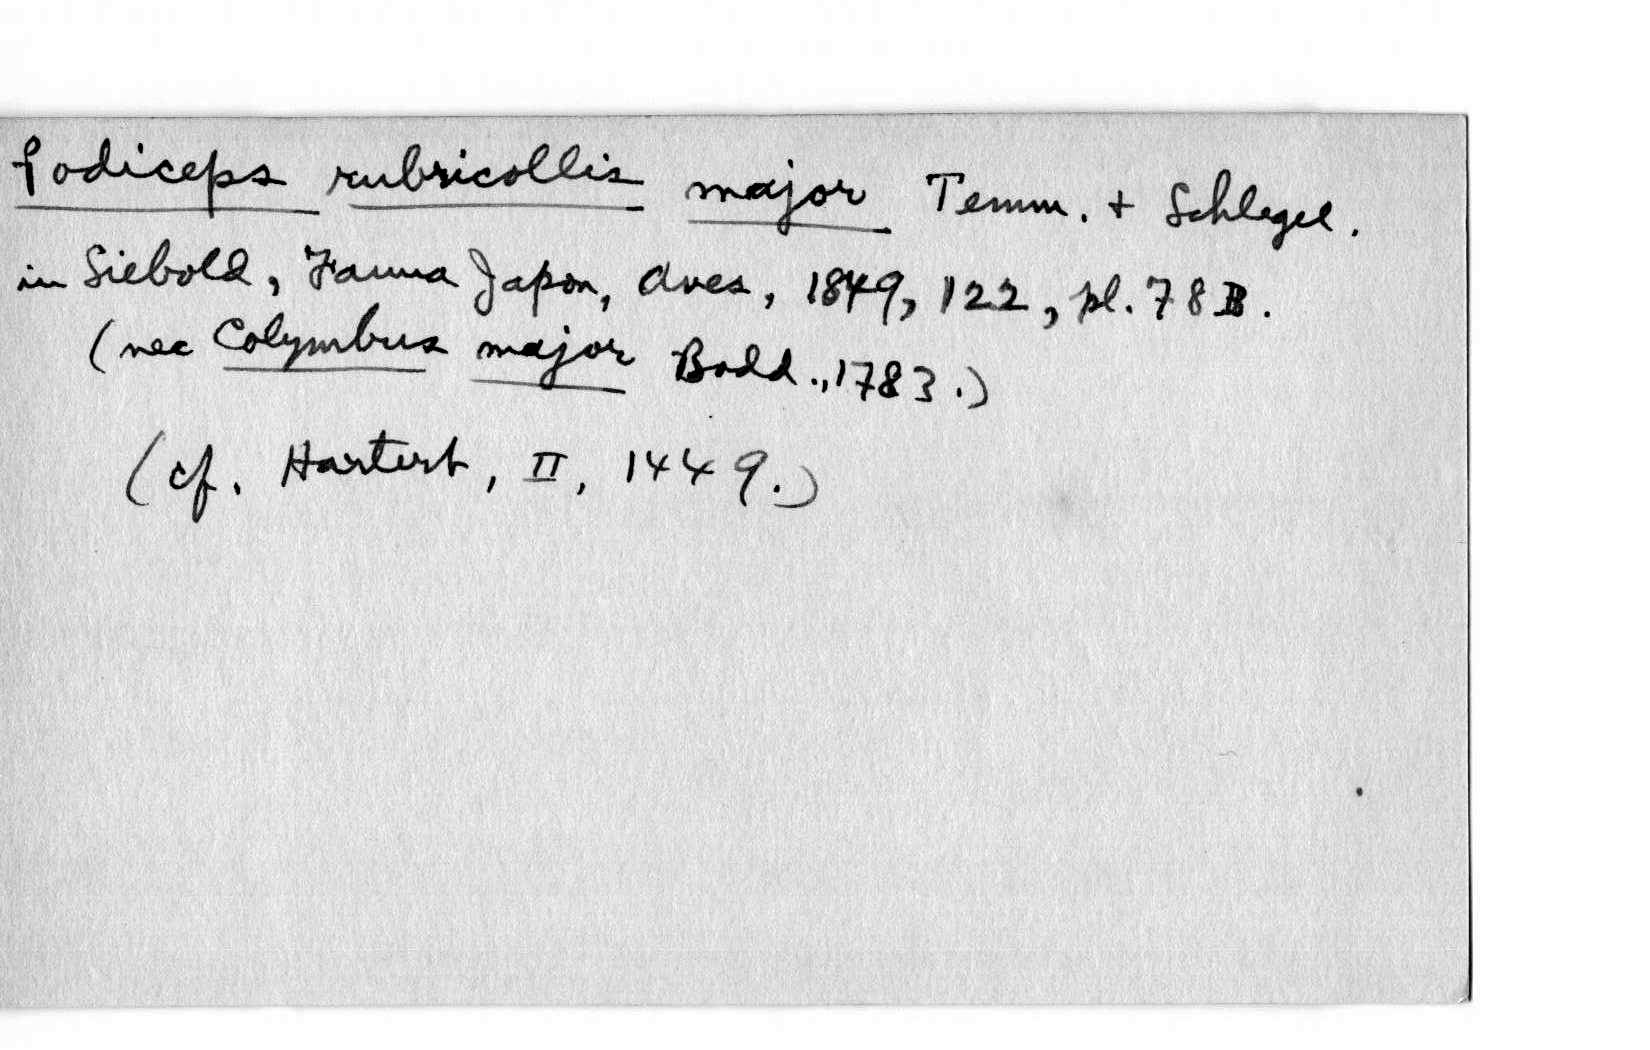 Podiceps rubricollis major Temm. + Schlegel.
in Siebold, Fauna Japon, Aves, 1849, 122, pl. 78B.
(nec Colymbus major Bodd., 1783.)
(cf. Hartert, II, 1449.)